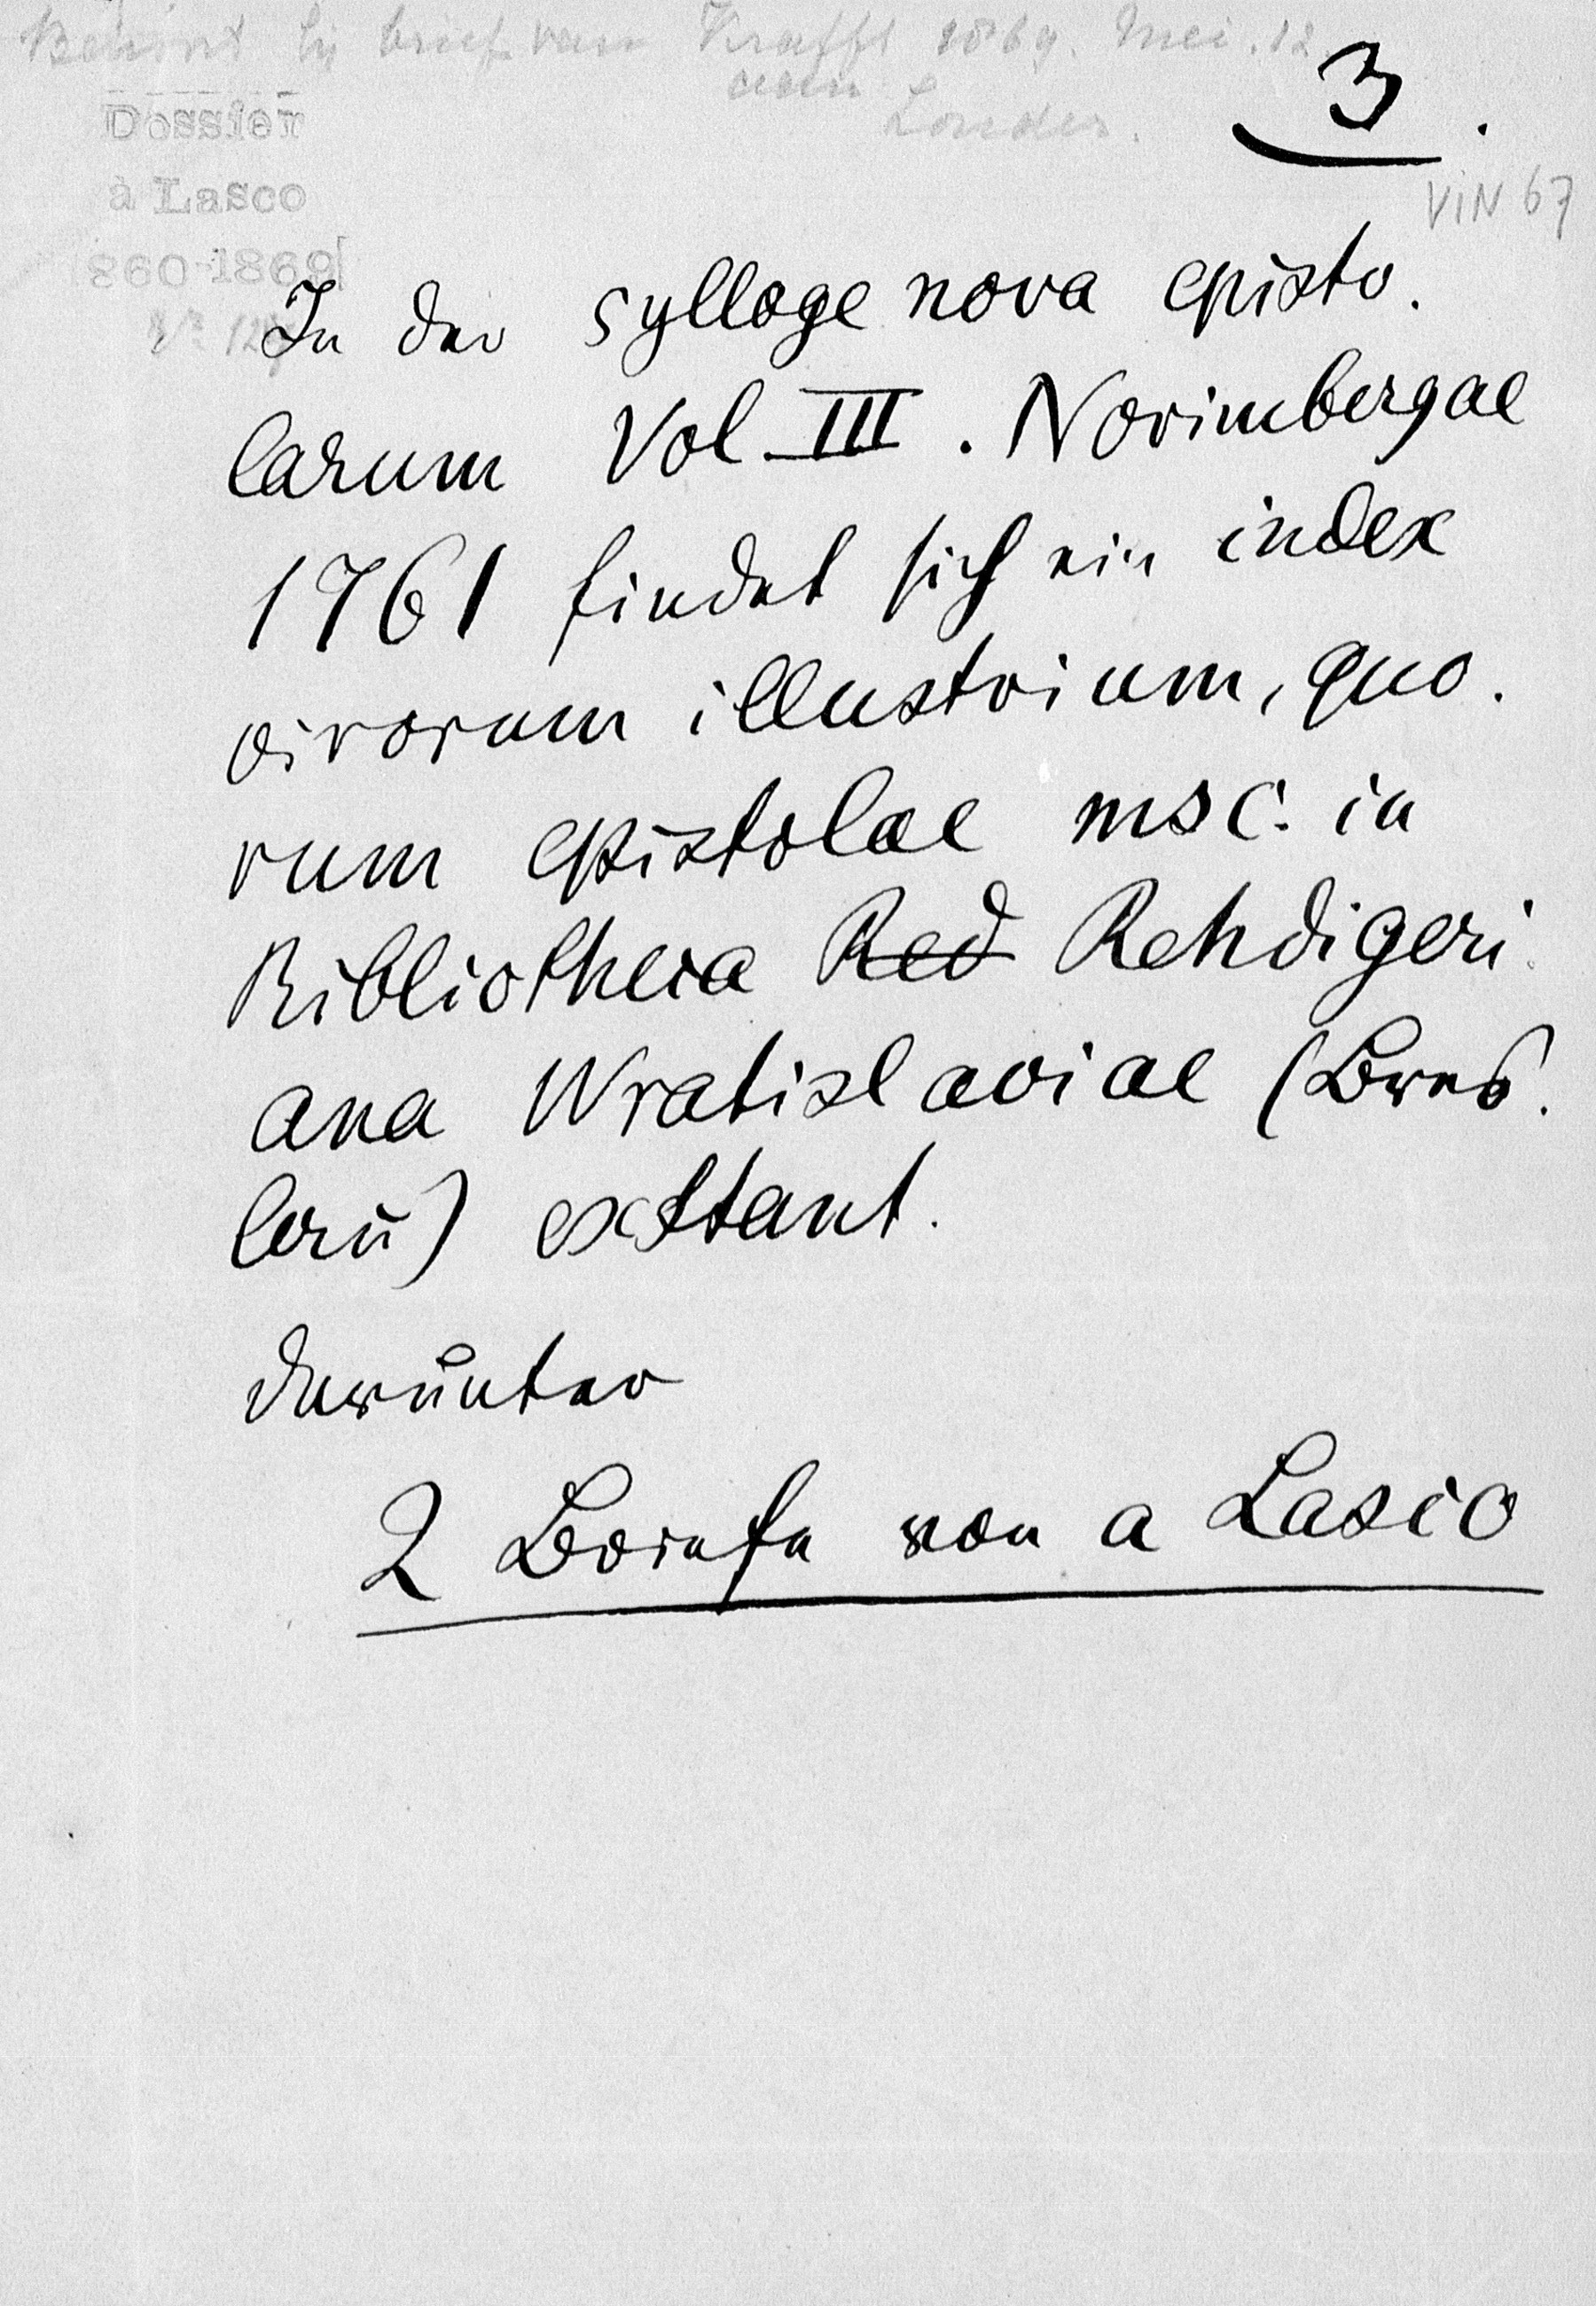 Behoort bij brief van Krafft 1869. Mei. 12.
aan
3.
Dossier
à Lasco
860-1869
VIN 67
In der sylloge nova episto.
larum Vol. III. Norimbergae
1761 findet sich ein index
virorum illustrium, quo.
rum epistolae msc. in
Bibliotheca Red Rehdigeri.
ana Wratislaviae (Bres.
lau) exstant.
darunter
2 Briefe von a Lasco